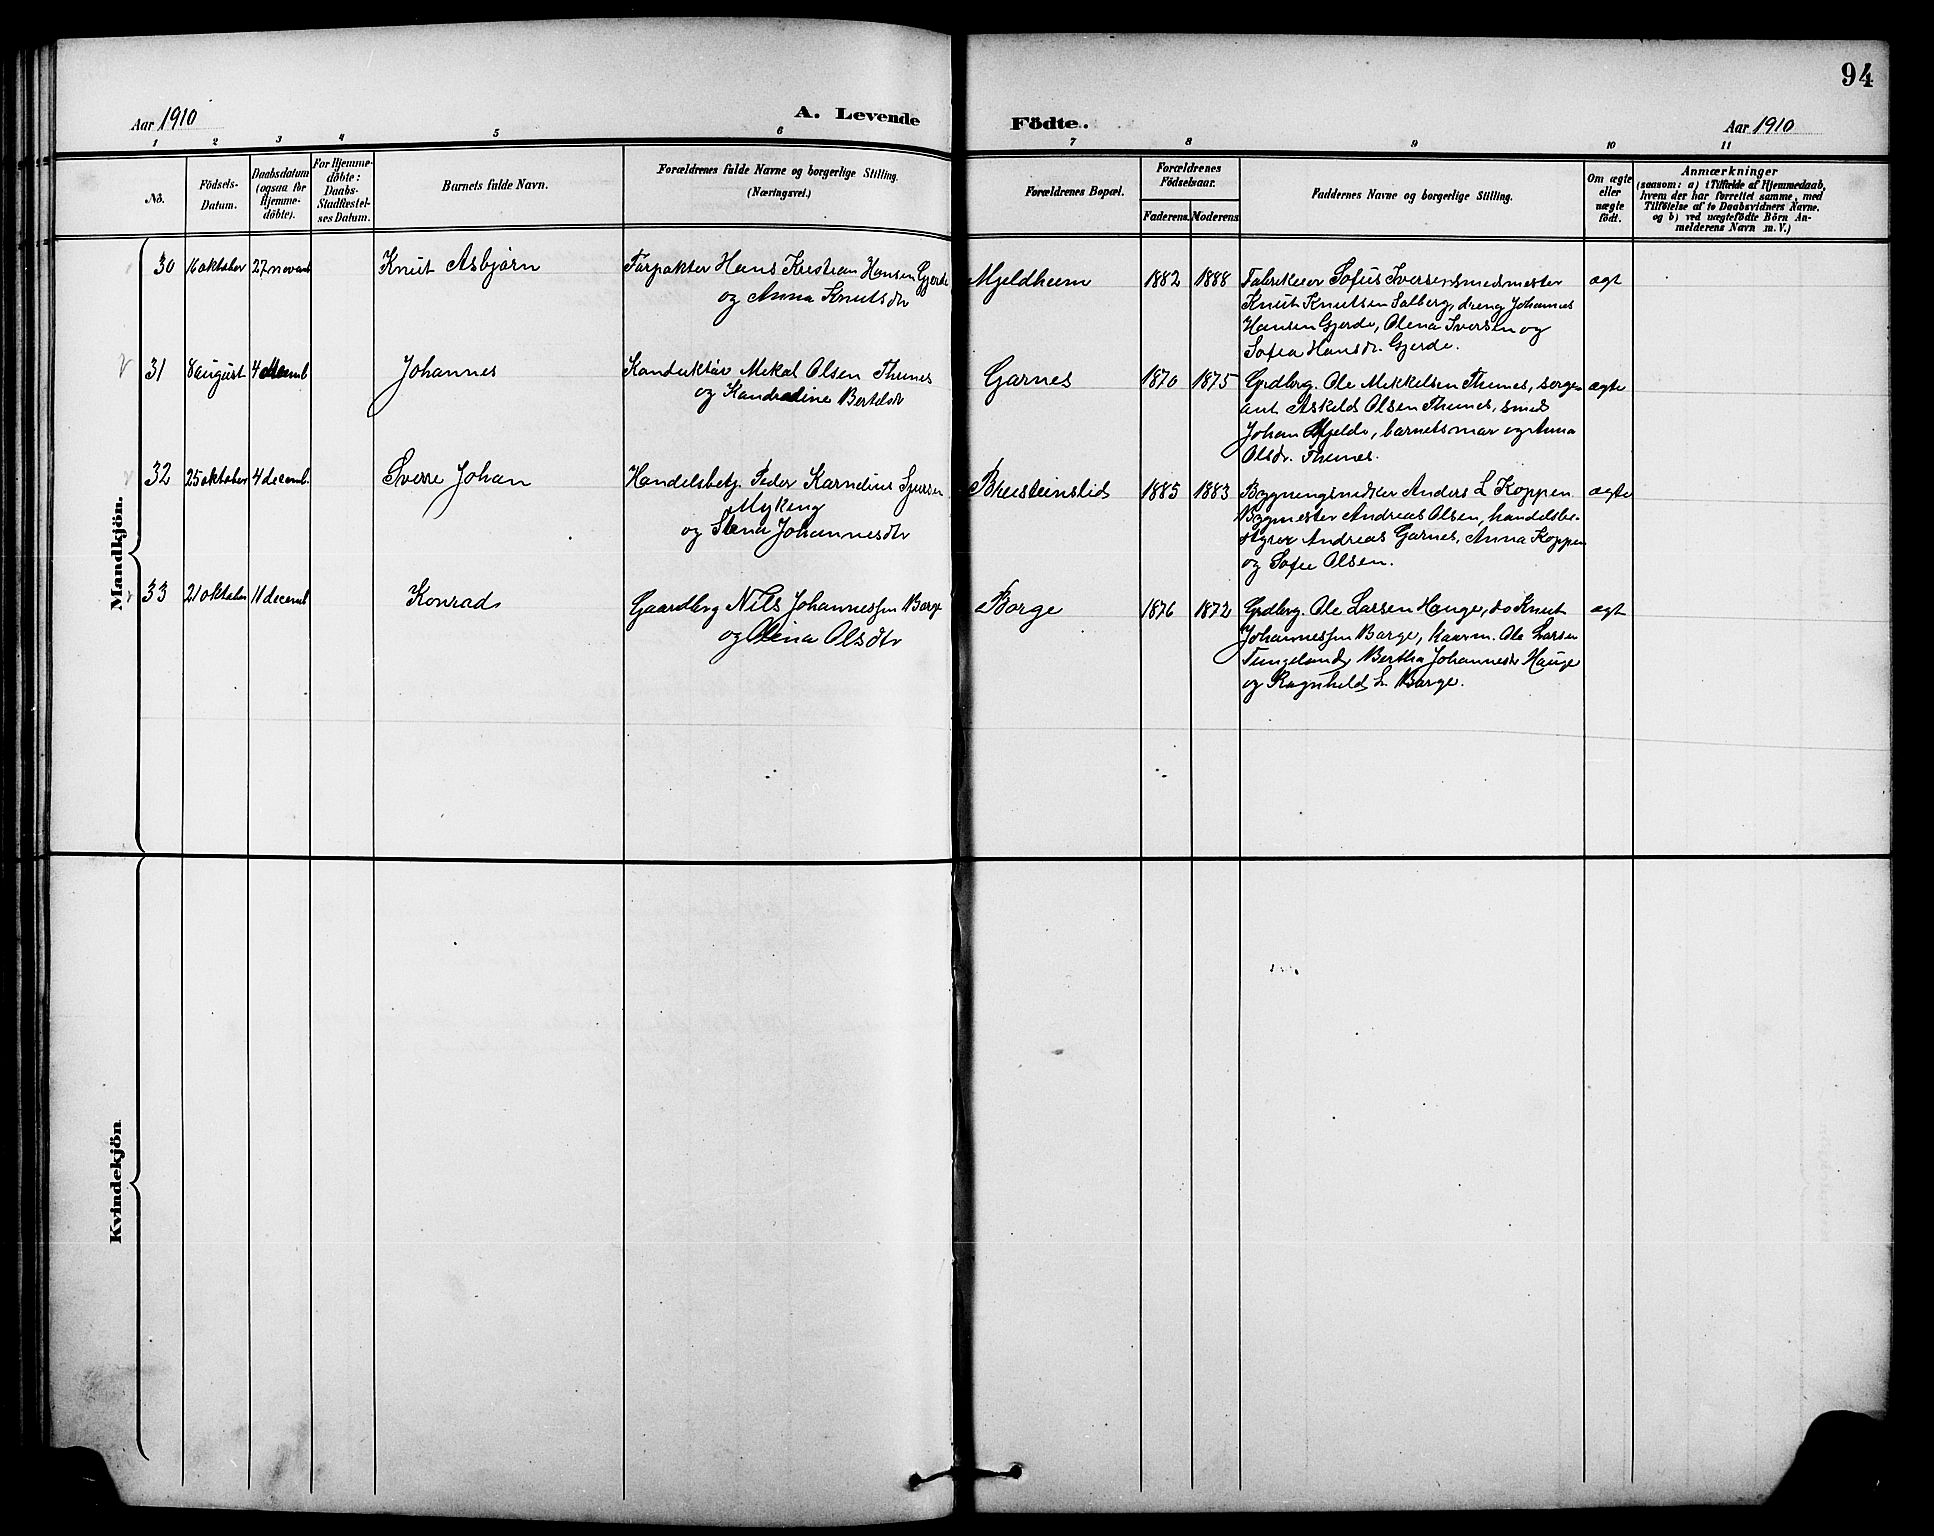 94
Aar 1910
A. Levende
Födte.
Aar 1910
1 2 3 4 5 6 7 8 9 10 11
No.
Födsels-
Datum.
Daabsdatum
(ogsaa for
Hjemme-
döbte).
For Hjemme-
döbte:
Daabs-
Stadfæstel-
ses Datum.
Barnets fulde Navn.
Forældrenes fulde Navne og borgerlige Stilling.
(Næringsvei.)
Forældrenes Bopæl.
Forældrenes
Födselsaar.
Faderens. Moderens.
Faddernes Navne og borgerlige Stilling.
Om ægte
eller
uægte
födt.
Anmærkninger
(saasom: a) i Tilfælde af Hjemmedaab,
hvem der har forrettet samme, med
Tilföielse af to Daabsvidners Navne.
og b) ved uægtefödte Börn An-
melderens Navn m. V.)
Mandkjön.
30 16 oktober 27 novemb Knut Asbjørn Forpakter Hans Kristian Hansen Gjerde
og Anna Knutsdtr
Mjeldheem 1882 1888 Fabrikeier Sofus Iversen smedmester
Knut Knutsen Solberg, dreng Johannes
Hansen Gjerde, Olena Iversen og
Sofia Hansdr. Gjerde.
ægt
31 8 august 4 decemb Johannes Konduktør Mikal Olsen Thunes
og Kondradine Bertelsdtr
Garnes 1870 1875 Grdbrg. Ole Mikkelsen Thunes, sergea
ant Askeld Olsen Thunes, smed
Johan Mjelde, barnets mor og Anna
Olsdr. Thunes.
ægte
32 25 oktober 4 decemb. Sverre Johan Handelsbetj. Peder Kornelius Sjursen
Myking
og Stena Johannesdtr
Breisteinslid 1885 1883 Bygningssnedker Anders L Koppen
Bygmester Andreas Olsen, handelsbe-
styrer Andreas Garnes, Anna Koppen
og Sofie Olsen.
ægte
33 21 oktober 11 decemb Konrad Gaardbrg Nils Johannessen Borge
og Olina Olsdtr
Borge 1876 1872 Grdbrg. Ole Larsen Hauge, do Knut
Johannessen Borge, kaarm. Ole Larsen
Tungeland, Bertha Johannesdr Hauge
og Ragnhild L. Borge.
ægt
Kvindekjön